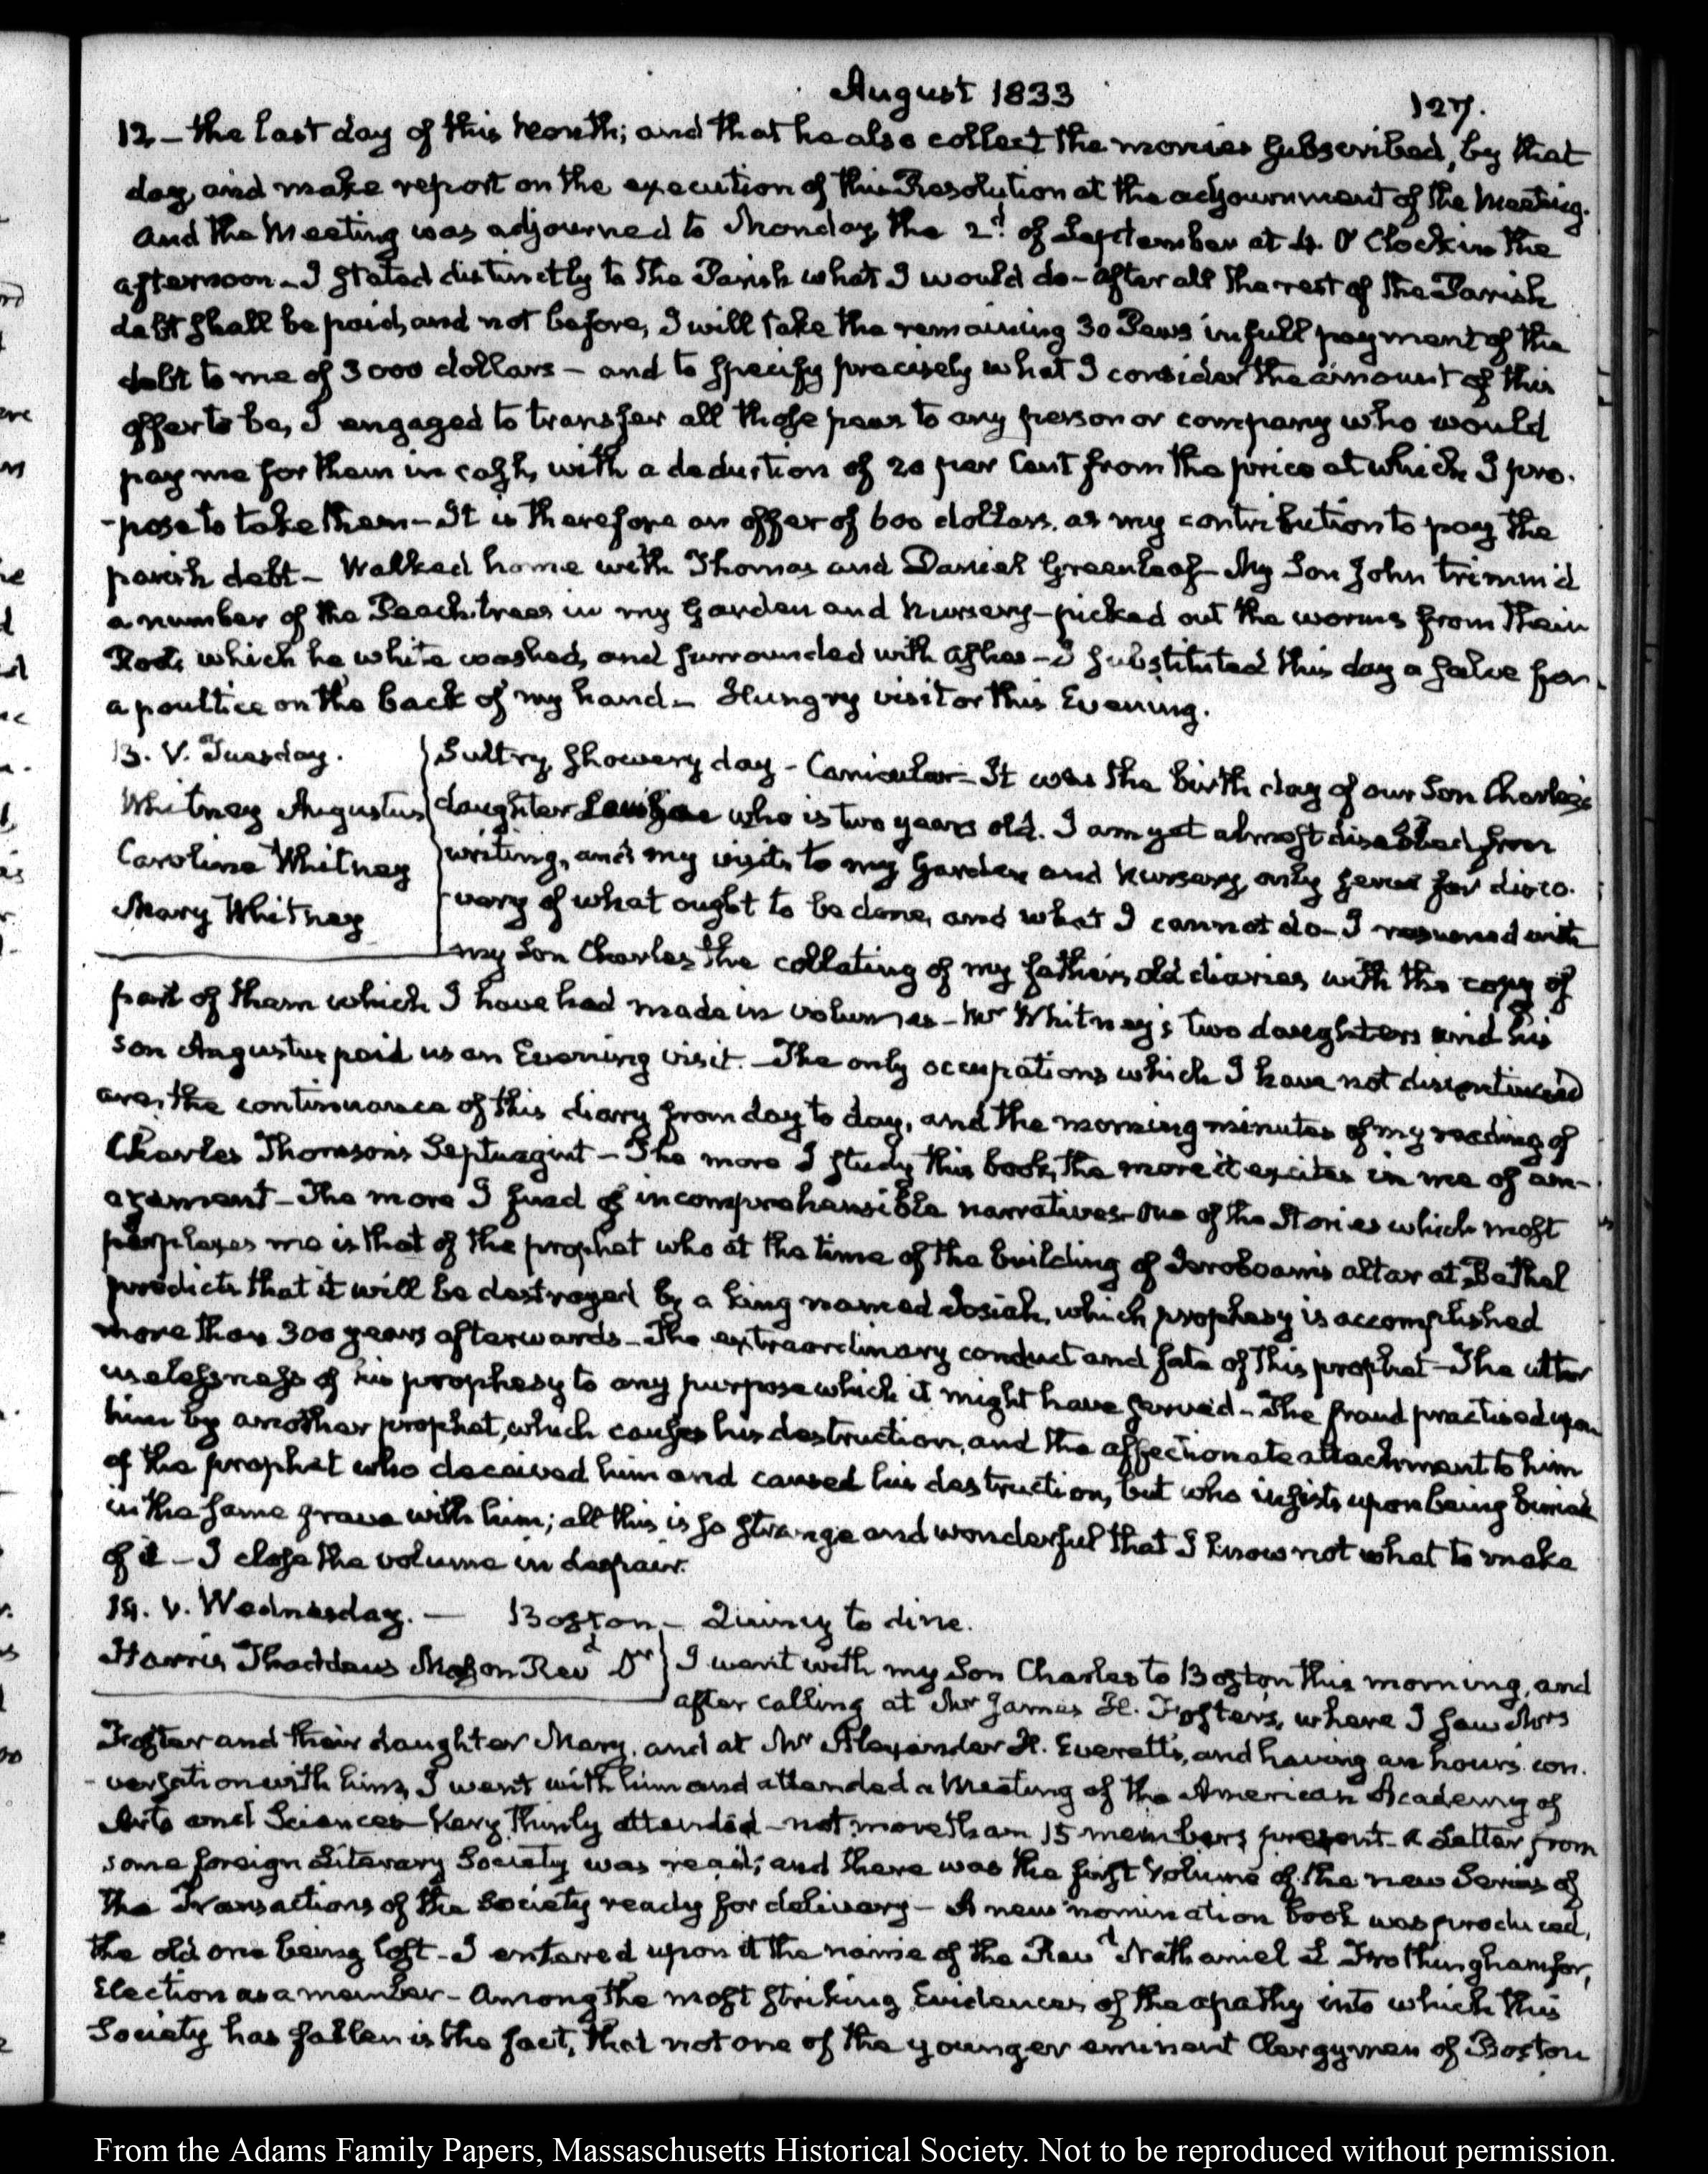 August 1833
127.
12 – the last day of this Month; and that he also collect the monies subscribed, by that
day, and make report on the execution of this Resolution at the adjournment of the Meeting.
And the Meeting was adjourned to Monday, the 2d of September at 4. O'Clock in the
afternoon – I stated distinctly to the Parish what I would do – after all the rest of the Parish
debt shall be paid, and not before, I will take the remaining 30 Pews in full payment of the
debt to me of 3000 dollars – and to specify precisely what I consider the amount of this
offer to be, I engaged to transfer all those pews to any person or company who would
pay me for them in cash, with a deduction of 20 per Cent from the price at which I pro-
-pose to take them – It is therefore an offer of 600 dollars, as my contribution to pay the
parish debt – Walked home with Thomas and Daniel Greenleaf – My Son John trimm'd
a number of the Peach trees in my Garden and Nursery – picked out the worms from their
Roots which he white washed, and surrounded with ashes – I substituted this day a salve for
a poultice on the back of my hand – Hungry visitor this Evening.
13. V. Tuesday.
Whitney Augustus
Caroline Whitney
Mary Whitney
Sultry, showery day – Canicular – It was the birth day of our Son Charles's
daughter Louisa who is two years old. I am yet almost disabled from
writing, and my visits to my Garden and Nursery, only serve for disco-
-very of what ought to be done, and what I cannot do – I resumed with
my Son Charles the collating of my father's old diaries with the copy of
part of them which I have had made in volumes – Mr Whitney's two daughters and his
son Augustus paid us an Evening visit. – The only occupations which I have not discontinued
are, the continuance of this diary from day to day, and the morning minutes of my reading of
Charles Thomson's Septuagint – The more I study this book, the more it excites in me of am-
azement – The more I find of incomprehensible narratives – One of the Stories which most
perplexes me is that of the prophet who at the time of the building of Jeroboam's altar at Bethel
predicts that it will be destroyed by a king named Josiah, which prophesy is accomplished
more than 300 years afterwards – The extraordinary conduct and fate of this prophet – The utter
uselessness of his prophesy to any purpose which it might have served – The fraud practised upon
him by another prophet, which causes his destruction, and the affectionate attachment to him
of the prophet who deceived him and caused his destruction, but who insists upon being buried
in the same grave with him; all this is so strange and wonderful that I know not what to make
of it – I close the volume in despair.
14. V. Wednesday. – Boston – Quincy to dine.
Harris Thaddeus Mason Revd Dr
I went with my Son Charles to Boston this morning, and
after calling at Mr James H. Foster's, where I saw Mrs
Foster and their daughter Mary, and at Mr Alexander H. Everett's, and having an hours con-
-versation with him, I went with him and attended a Meeting of the American Academy of
Arts and Sciences – Very thinly attended – not more than 15 members present – A Letter from
some foreign Literary Society was read; and there was the first Volume of the new Series of
the Transactions of the Society ready for delivery – A new nomination book was produced,
the old one being lost – I entered upon it the name of the Revd Nathaniel L Frothingham for,
Election as a member – Among the most striking Evidences of the apathy into which this
Society has fallen is the fact, that not one of the younger eminent Clergymen of Boston
From the Adams Family Papers, Massachusetts Historical Society. Not to be reproduced without permission.